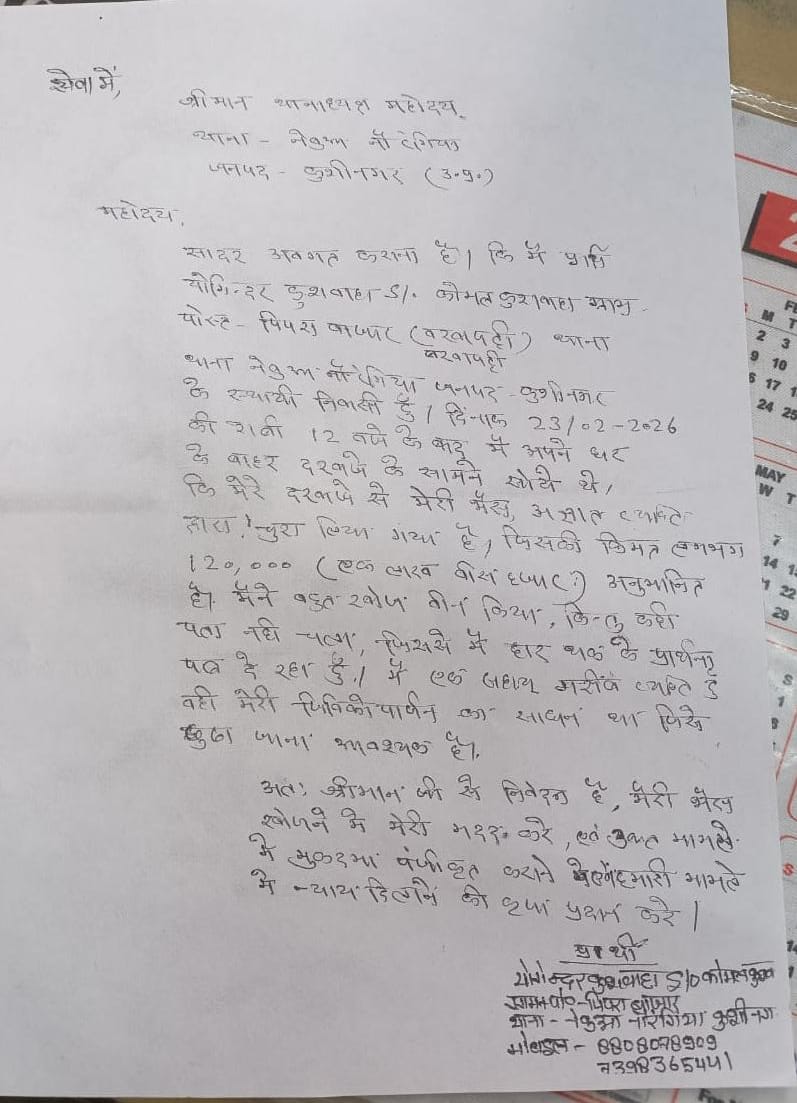 सेवा में,
श्रीमान थानाध्यक्ष महोदय,
थाना - नेबुआ नौरंगिया
जनपद - कुशीनगर (उ.प्र.)
महोदय,
सादर अवगत कराना है। कि मैं प्रार्थि
योगिन्दर कुशवाहा S/o कोमल कुशवाहा ग्राम-
पोस्ट - पिपरा बाजार (बरवापट्टी) थाना
बरवापट्टी
थाना नेबुआ नौरंगिया जनपद - कुशीनगर
के स्थायी निवासी हूँ। दिनाक 23/02-2026
की रात्री 12 बजे के बाद मैं अपने घर
के बाहर दरवाजे के सामने सोये थे,
कि मेरे दरवाजे से मेरी भैंस, अज्ञात व्यक्ति
द्वारा चुरा लिया गया है, जिसकी किमत लगभग
120,000 (एक लाख बीस हजार) अनुमानित
है। मैंने बहुत खोज बीन किया, किन्तु कही
पता नही चला, जिससे मैं हार थक के प्रार्थना
पत्र दे रहा हूँ। मैं एक गरीब व्यक्ति हूँ
वही मेरी जिविकोपार्जन का साधन था जिसे
ढूढा जाना आवश्यक है।
अतः श्रीमान जी से निवेदन है, मेरी भैंस
खोजने मे मेरी मदद करे, एवं उक्त मामले
मे मुकदमा पंजीकृत कराने हमारी मामले
मे न्याय दिलाने की कृपा प्रदान करे।
प्रार्थी
योगेन्दर कुशवाहा S/o कोमल कुशवा
ग्राम व पो०-पिपरा बाजार
थाना - नेबुआ नौरंगिया कुशीनग
मोबाइल - 8808078909
7398365441
2
M T
2 3
9 10
17
24 25
MAY
W T
7
14
22
29
S
S